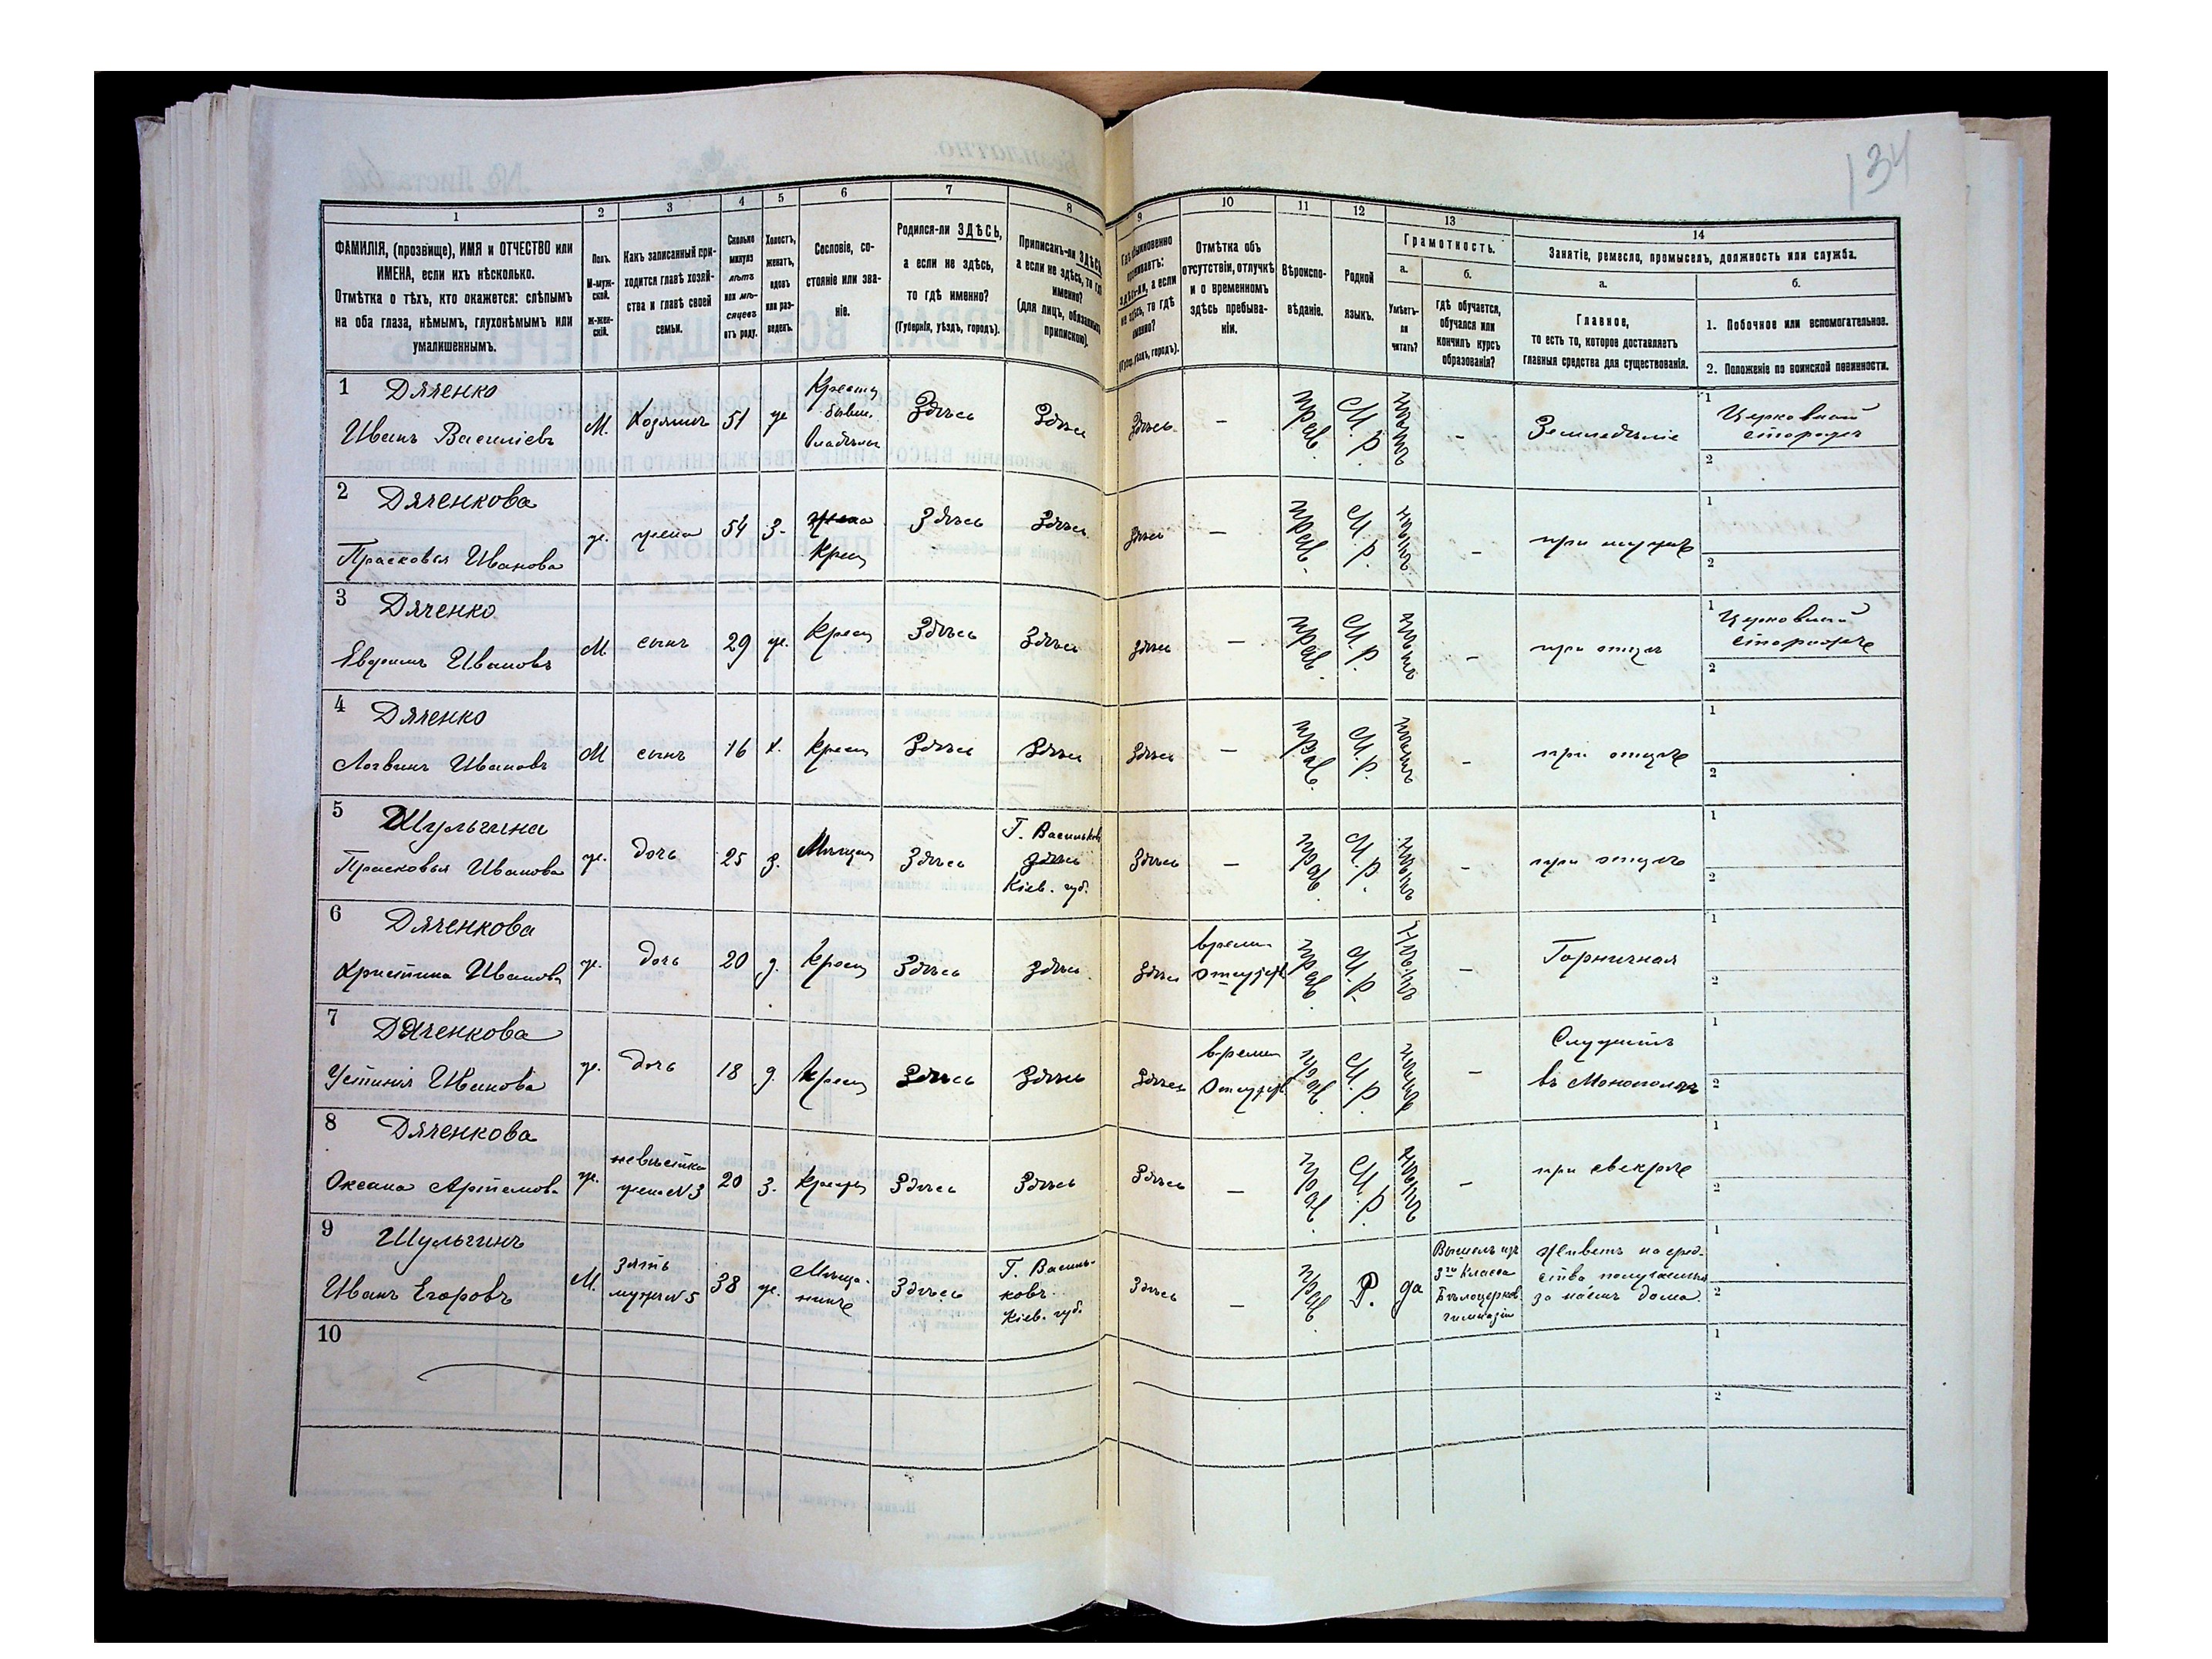 134
1
2
3
4
5
6
7
8
9
10
11
12
13
14
ФАМИЛІЯ, (прозвище), ИМЯ и ОТЧЕСТВО или
ИМЕНА, если ихъ нѣсколько.
Отмѣтка о тѣхъ, кто окажется: слѣпымъ
на оба глаза, нѣмымъ, глухонѣмымъ или
умалишеннымъ.
Полъ.
М-муж-
ской.
Ж-жен-
скій.
Какъ записанный при-
ходится главѣ хозяй-
ства и главѣ своей
семьи.
Сколько
минуло
лѣтъ
или мѣ-
сяцевъ
отъ роду.
Холостъ,
женатъ,
вдовъ
или раз-
веденъ.
Сословіе, со-
стояніе или зва-
ніе.
Родился-ли ЗДѢСЬ,
а если не здѣсь,
то гдѣ именно?
(Губернія, уѣздъ, городъ).
Приписанъ-ли ЗДѢСЬ,
а если не здѣсь, то гдѣ
именно?
(для лицъ, обязанныхъ
припискою).
Гдѣ обыкновенно
проживаетъ:
здѣсь-ли, а если
не здѣсь, то гдѣ
именно?
(Губер. уѣздъ, городъ).
Отмѣтка объ
отсутствіи, отлучкѣ
и о временномъ
здѣсь пребыва-
ніи.
Вѣроиспо-
вѣданіе.
Родной
языкъ.
Грамотность.
а.
б.
Умѣетъ-
ли
читать?
гдѣ обучается,
обучался или
кончилъ курсъ
образованія?
Занятіе, ремесло, промыселъ, должность или служба.
а.
б.
Главное,
то есть то, которое доставляетъ
главныя средства для существованія.
1. Побочное или вспомогательное.
2. Положеніе по воинской повинности.
1 Дяченко
Иванъ Василіевъ
М. Хозяинъ 51 ж
Крестц
бывш.
Владѣльч
Здѣсь Здѣсь Здѣсь - прав. М.р. нѣтъ - Земледѣліе
1 Церковный
сторожъ
2
2 Дяченкова
Прасковья Иванова
ж. жена 54 з. жена
Крест
Здѣсь Здѣсь Здѣсь - прав. М.р. нѣтъ - при мужѣ
1
2
3 Дяченко
Евдокимъ Ивановъ
М сынъ 29 ж. Крест Здѣсь Здѣсь Здѣсь - прав. М.р. нѣтъ - при отцѣ
1 Церковный
сторожъ
2
4 Дяченко
Логвинъ Ивановъ
М сынъ 16 х. Крест Здѣсь Здѣсь Здѣсь - прав. М.р. нѣтъ - при отцѣ
1
2
5 Шульгина
Прасковья Иванова
ж. дочь 25 з. Мѣщан Здѣсь
Г. Васильковъ
здѣсь
Кіев. губ.
Здѣсь - прав. М.р. нѣтъ при отцѣ
1
2
6 Дяченкова
Христина Иванова
ж. дочь 20 д. Крест Здѣсь Здѣсь Здѣсь
времен.
отсутств
прав. М.р. Нѣтъ - Горничная
1
2
7 Дяченкова
Устинія Иванова
ж. дочь 18 д. Крест Здѣсь Здѣсь Здѣсь
времен
отсутств
прав. М.р. нѣтъ -
Служитъ
въ Монополіѣ
1
2
8 Дяченкова
Оксана Артемова
ж.
невѣстка
жена №3
20 з. Крест Здѣсь Здѣсь Здѣсь - прав. М.р. нѣтъ - при свекрѣ
1
2
9 Шульгинъ
Иванъ Егоровъ
М.
зять
мужъ №5
38 ж.
Мѣща-
нинъ
Здѣсь
Г. Василь-
ковъ
Кіев. губ.
Здѣсь - прав. Р. да
Вышелъ изъ
3го Класса
Бѣлоцерков.
гимназіи
Живетъ на сред-
ства получаемыя
за наемъ дома
1
2
10
1
2